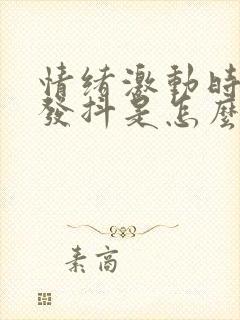 情绪激動時
發抖是怎麼
素高